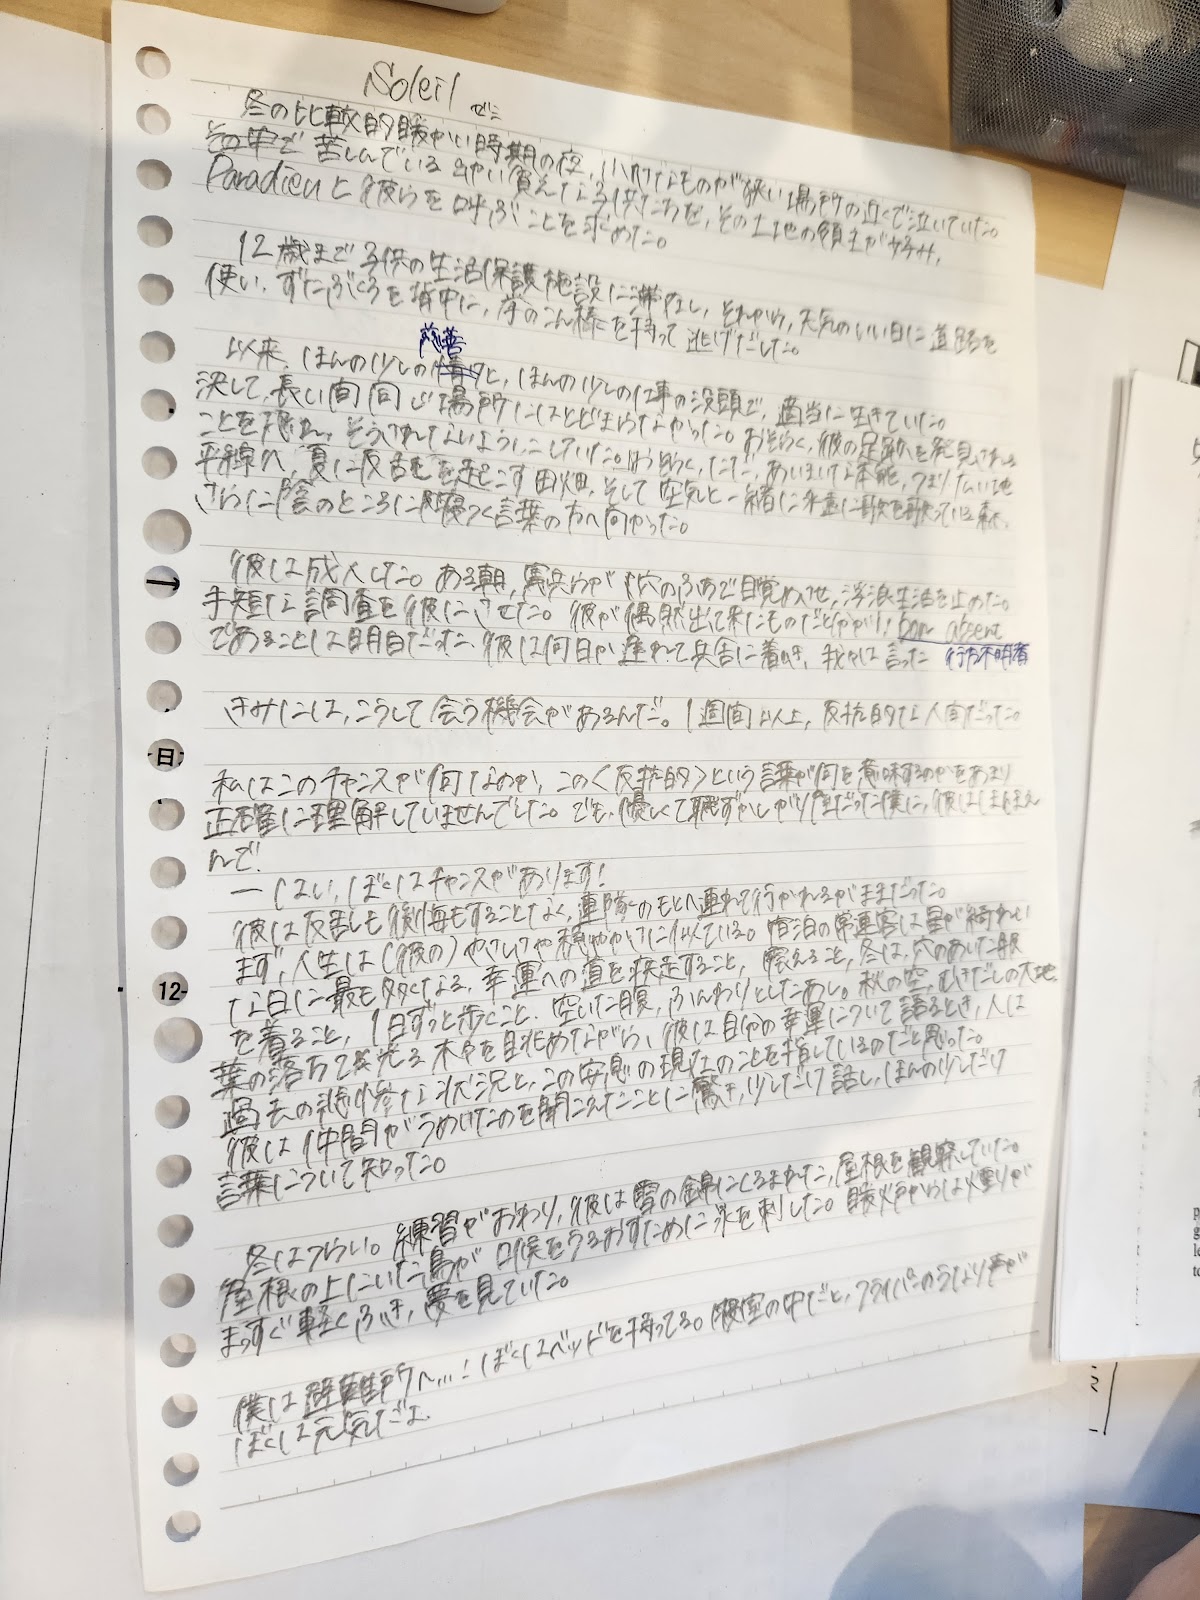 Soleil
冬の比較的暖かい時期の夜、小さなものが狭い場所の近くで泣いていた。
その中で苦しんでいる 子供たちを、その土地の領主が好み、
Paradieuと彼らを呼ぶことを求めた。
12歳まで子供の生活保護施設に滞在し、それから、天気のいい日に道路を
使い、ずたぶくろを背中に、手のこん棒を持って逃げだした。
慈善
以来、ほんの少しの と、ほんの少しの仕事の没頭で、適当に生きていた。
決して、長い間同じ場所にはとどまらなかった。おそらく、彼の足跡を発見される
ことを恐れ、そうされないようにしていた。 ただ、あいまいな本能、つまり広い地
平線へ、夏に 起こす田畑、そして空気と一緒に永遠に歌を歌っている森、
さらに陰のところに寝つく言葉の方へ向かった。
彼は成人した。ある朝、憲兵らが 穴のふちで目覚めさせ、浮浪生活を止めた。
手短な調査を彼にさせた。彼が偶然出て来たものだと分かり、bon absent
であることは明白だった。彼は何日か遅れて兵舎に着き、我々は言った 行方不明者
きみには、こうして会う機会があるんだ。1週間以上、反抗的な人間だった。
私はこのチャンスが何なのか、この〈反抗的〉という言葉が何を意味するのかをあまり
正確に理解していませんでした。でも、優しくて恥ずかしがり屋だった僕に、彼はほほえ
んで、
ー はい、ぼくはチャンスがあります!
彼は反省も後悔もすることなく、連隊のもとへ連れて行かれるがままだった。
まず、人生は(彼の)やさしさや穏やかさに似ている。宿泊の常連客は星が綺れい
な日に最も多くなる。幸運への道を疾走すること、震えること、冬は、穴のあいた服
を着ること、1日ずっと歩くこと、空いた腹、ふんわりとしたあし。秋の空、むきだしの大地、
葉の落ちて光る木々を眺めながら、彼は自分の幸運について語るとき、人は
過去の悲惨な状況と、この安息の現在のことを指しているのだと思った。
彼は仲間がうめいたのを聞こえたことに驚き、少しだけ話し、ほんの少しだけ
言葉について知った。
冬はつらい。練習がおわり、彼は雪の綿にくるまれた、屋根を観察していた。
屋根の上にいた鳥が 喉をうるおすために氷を刺した。暖炉からは煙りが
まっすぐ軽くふき、夢を見ていた。
僕は避難所へ...!ぼくはベッドを持ってる。寝室の中だと、フライパンのうなり声が
ぼくは元気だよ。
12
日